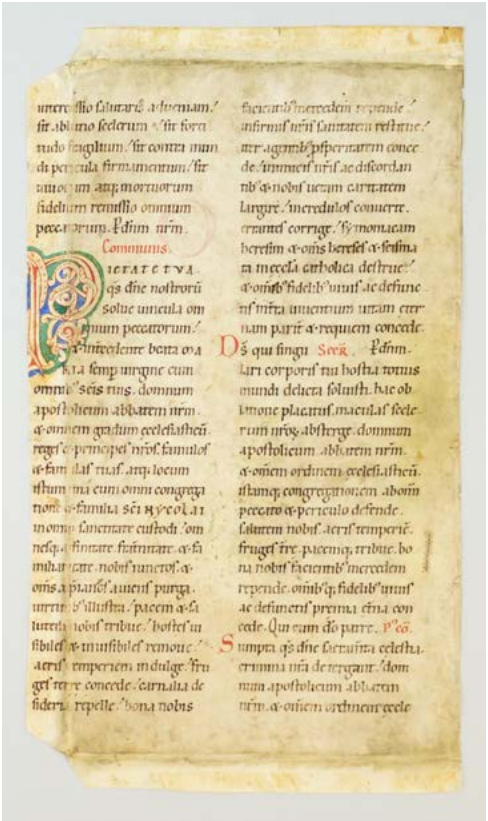 interce ssio salutaris aduenam
sit ablutio scelerum sit forti
tudo fragilium sit contra mun
di pericula firmamentum sit
uiuorum atq; mortuorum
fidelium remissio omnium
peccatorum. P dnm nrm.
Communis.
PIETATE TVA
qs dne nostrorū
solue uincula om
nium peccatorum
& intercedente beata MA
RIA semp uirgine cum
omnib' scis tuis. domnum
apostolicum abbatem nrm.
& omnem gradum ecclesiasticū
reges & principes nros famulos
& famulas tuas. atq; locum
istum una cum omni congrega
tione & familia SCI NYCOLAI
in omni sanctitate custodi om
nesq; affinitate. & fa
miliaritate. nobis iunctos. &
oms xpianos a uitiis purga.
uirtutib' illustra pacem & sa
lutem nobis tribue hostes ui
sibiles & inuisibiles remoue
aeris temperiem indulge fru
ges terre concede carnalia de
sideria repelle bona nobis
facientib' mercedem repende
infirmis nris sanitatem restitue
iter agentib' psperitatem conce
de inimicis nris ac discordan
tib' & nobis ueram caritatem
largire increduloS conuerte.
errantes corrige symoniacam
heresim & oms hereses & scisma
ta in eccla catholica destrue
& omib' fidelib' uiuis ac defunc
tis in tra uiuentium uitam eter
nam parit & requiem concede.
Ds qui singu Secr. P dnm.
lari corporis tui hostia totius
mundi delicta soluisti. hac ob
latione placatus. maculas scele
rum nroꝝ absterge. domnum
apostolicum abbatem nrm.
& omem ordinem ecclesiasticū.
istamq; congregationem ab omi
peccato & periculo defende.
salutem nobis. aeris temperiē.
fruges tre. pacemq; tribue. bo
na nobis facientib' mercedem
repende. omib' q; fidelib' uiuis
ac defunctis premia etna con
cede. Qui cum do patre. P' cō.
Sumpta qs dne sacramta celestia.
crimina nra detergant. dom
num apostolicum abbatem
nrm. & omem ordinem eccle